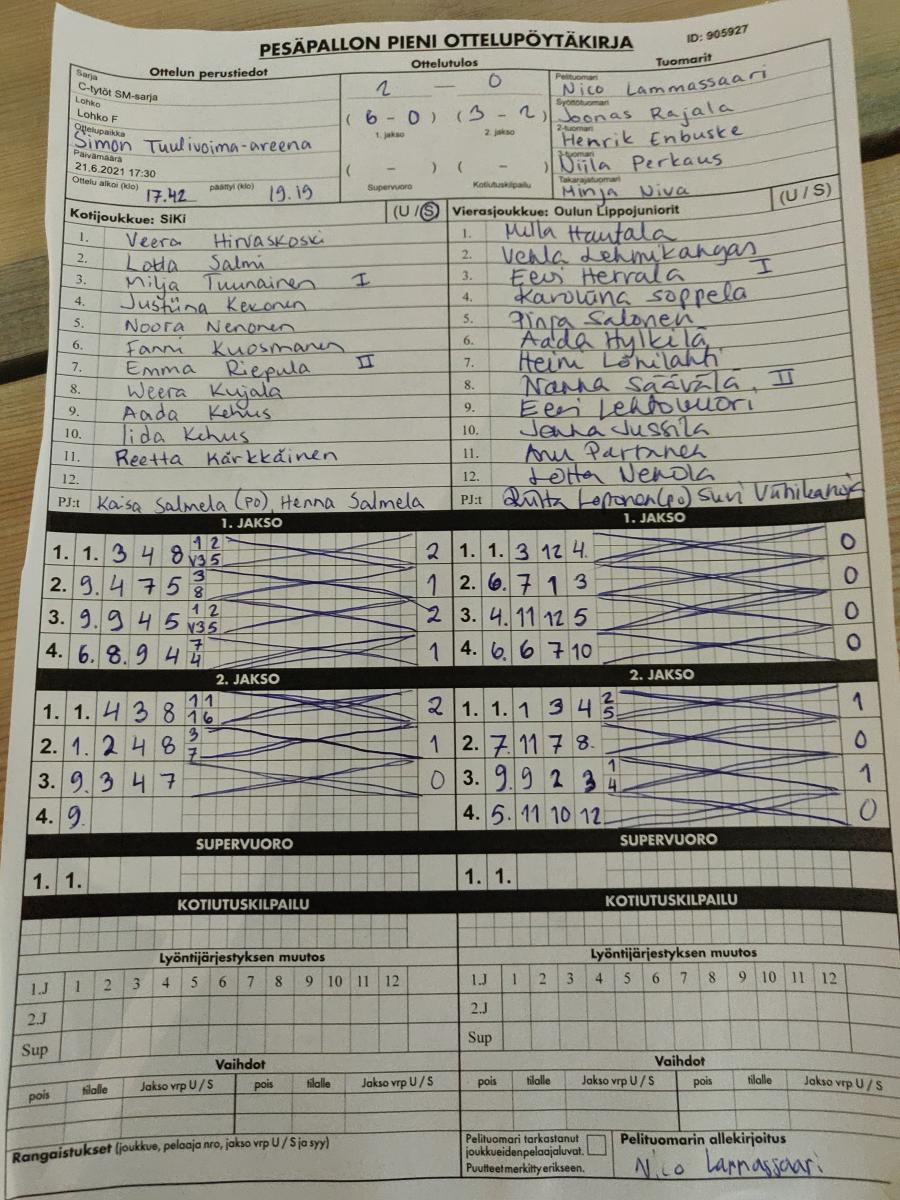 PESÄPALLON PIENI OTTELUPÖYTÄKIRJA
ID: 905927
Ottelun perustiedot
Sarja
C-tytöt SM-sarja
Lohko
Lohko F
Ottelupaikka
Simon Tuulivoima-areena
Päivämäärä
21.6.2021 17:30
Ottelu alkoi (klo) 17.42 päättyi (klo) 19.19
Ottelutulos
2 — 0
(6 - 0) (3 - 2)
1. jakso 2. jakso
( - ) ( - )
Supervuoro Kotiutuskilpailu
Tuomarit
Pelituomari
Nico Lammassaari
Syöttötuomari
Joonas Rajala
2-tuomari
Henrik Enbuske
3-tuomari
Niila Perkaus
Takarajatuomari
Minja Niva
Kotijoukkue: SiKi (U / S)
1. Veera Hirvaskoski
2. Lotta Salmi
3. Milja Tuunainen I
4. Justiina Kekonen
5. Noora Nenonen
6. Fanni Kuosmanen
7. Emma Riepula II
8. Weera Kujala
9. Aada Kehus
10. Iida Kehus
11. Reetta Kärkkäinen
12.
PJ:t Kaisa Salmela (PO), Henna Salmela
Vierasjoukkue: Oulun Lippojuniorit (U / S)
1. Milla Hautala
2. Venla Lehmikangas
3. Eevi Herrala I
4. Karoliina Soppela
5. Pinja Salonen
6. Aada Hylkilä
7. Heini Lönilahti
8. Nanna Säävälä II
9. Eevi Lehtovuori
10. Jenna Jussila
11. Anu Partanen
12. Lotta Nenola
PJ:t (PO) Suvi
1. JAKSO
1. 1. 3 4 8 1 2 V3 5 2
2. 9. 4 7 5 3 8 1
3. 9. 9 4 5 1 2 V3 5 2
4. 6. 8. 9 4 7 4 1
1. JAKSO
1. 1. 3 12 4. 0
2. 6. 7 1 3 0
3. 4. 11 12 5 0
4. 6. 6 7 10 0
2. JAKSO
1. 1. 4 3 8 1 1 1 6 2
2. 1. 2 4 8 3 7 1
3. 9. 3 4 7 0
4. 9.
2. JAKSO
1. 1. 1 3 4 2 5 1
2. 7. 11 7 8. 0
3. 9. 9 2 3 1 4 1
4. 5. 11 10 12 0
SUPERVUORO
1. 1.
SUPERVUORO
1. 1.
KOTIUTUSKILPAILU
KOTIUTUSKILPAILU
Lyöntijärjestyksen muutos
1.J 1 2 3 4 5 6 7 8 9 10 11 12
2.J
Sup
Lyöntijärjestyksen muutos
1.J 1 2 3 4 5 6 7 8 9 10 11 12
2.J
Sup
Vaihdot
pois tilalle Jakso vrp U / S pois tilalle Jakso vrp U / S
Vaihdot
pois tilalle Jakso vrp U / S pois tilalle Jakso vrp U / S
Rangaistukset (joukkue, pelaaja nro, jakso vrp U / S ja syy)
Pelituomari tarkastanut
joukkueiden pelaajaluvat.
Puutteet merkitty erikseen.
Pelituomarin allekirjoitus
Nico Lammassaari